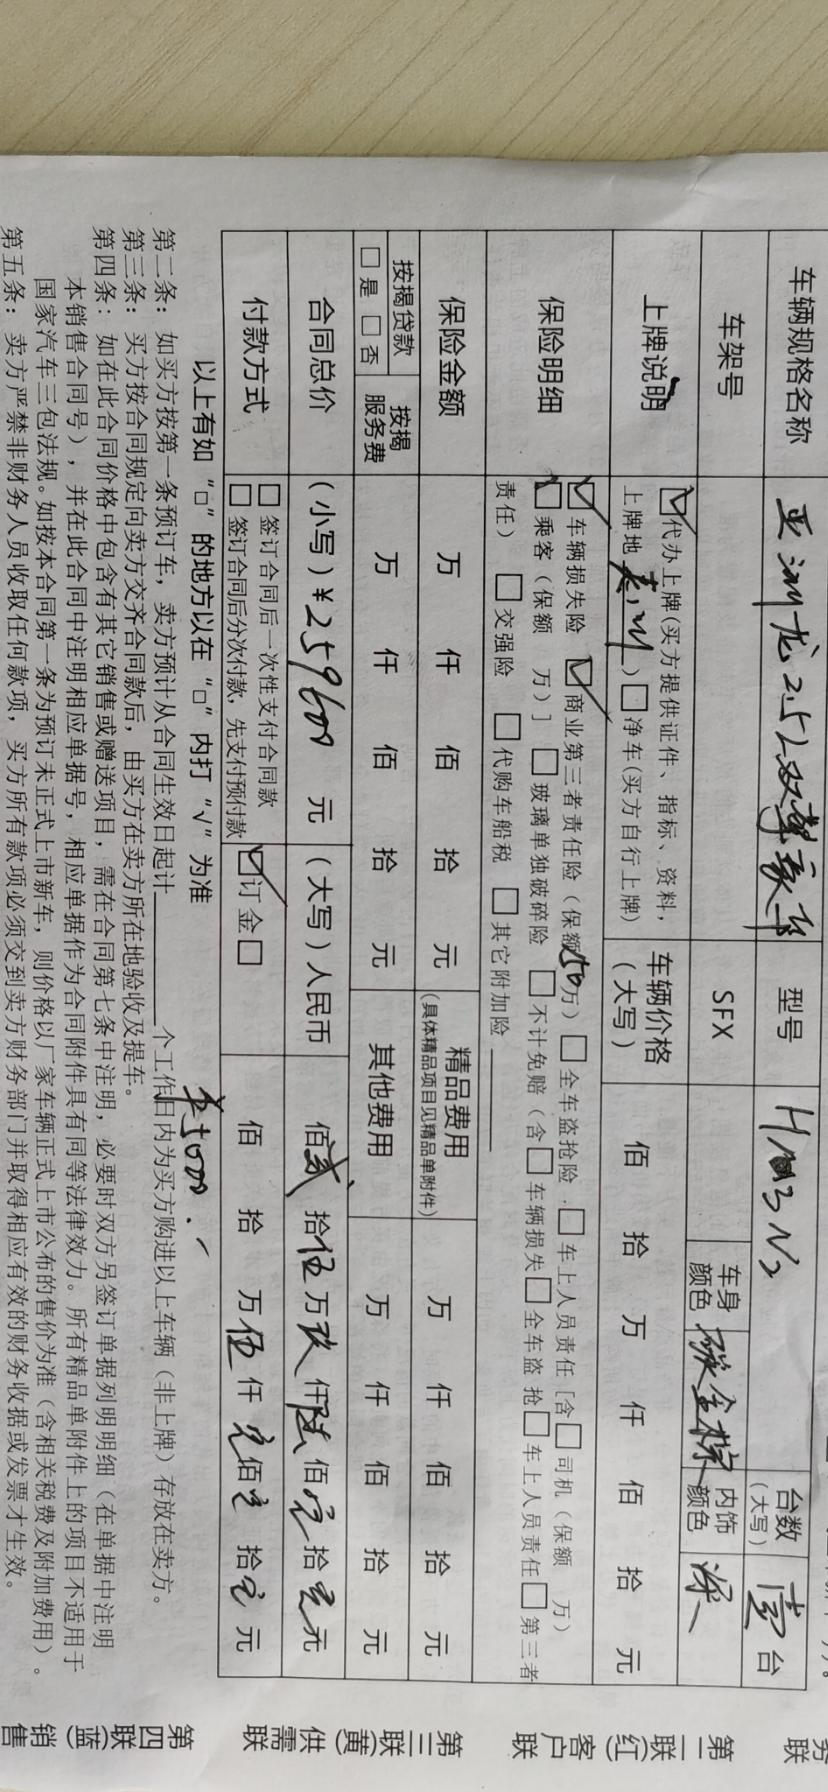 车辆规格名称 亚洲龙2.5L双擎豪华 型号 台数（大写） 壹台
车架号 SFX 车身颜色 内饰颜色 深
上牌说明 ☑代办上牌(买方提供证件、指标、资料，
上牌地 ）□净车(买方自行上牌) 车辆价格（大写） 佰 拾 万 仟 佰 拾 元
保险明细 ☑车辆损失险 ☑商业第三者责任险（保额50万）□全车盗抢险．□车上人员责任［含□司机（保额 万）
☑乘客（保额 万）］□玻璃单独破碎险 □不计免赔（含□车辆损失□全车盗 抢□车上人员责任□第三者
责任） □交强险 □代购车船税 □其它附加险
保险金额 万 仟 佰 拾 元 精品费用（具体精品项目见精品单附件） 万 仟 佰 拾 元
按揭贷款 □是 □否 按揭服务费 万 仟 佰 拾 元 其他费用 万 仟 佰 拾 元
合同总价 （小写）¥259600 元 （大写）人民币 佰贰拾伍万玖仟陆佰零拾零元
付款方式 □签订合同后一次性支付合同款
□签订合同后分次付款，先支付预付款 ☑订金□ 佰 拾 万伍仟零佰零拾零元
以上有如“□”的地方以在“□”内打“√”为准
第二条：如买方按第一条预订车，卖方预计从合同生效日起计 个工作日内为买方购进以上车辆（非上牌）存放在卖方。
第三条：买方按合同规定向卖方交齐合同款后，由买方在卖方所在地验收及提车。
第四条：如在此合同价格中包含有其它销售或赠送项目，需在合同第七条中注明，必要时双方另签订单据列明明细（在单据中注明
本销售合同号），并在此合同中注明相应单据号，相应单据作为合同附件具有同等法律效力。所有精品单附件上的项目不适用于
国家汽车三包法规。如按本合同第一条为预订未正式上市新车，则价格以厂家车辆正式上市公布的售价为准（含相关税费及附加费用）。
第五条：卖方严禁非财务人员收取任何款项，买方所有款项必须交到卖方财务部门并取得相应有效的财务收据或发票才生效。
务联
第二联(红)客户联
第三联(黄)供需联
第四联(蓝)销售